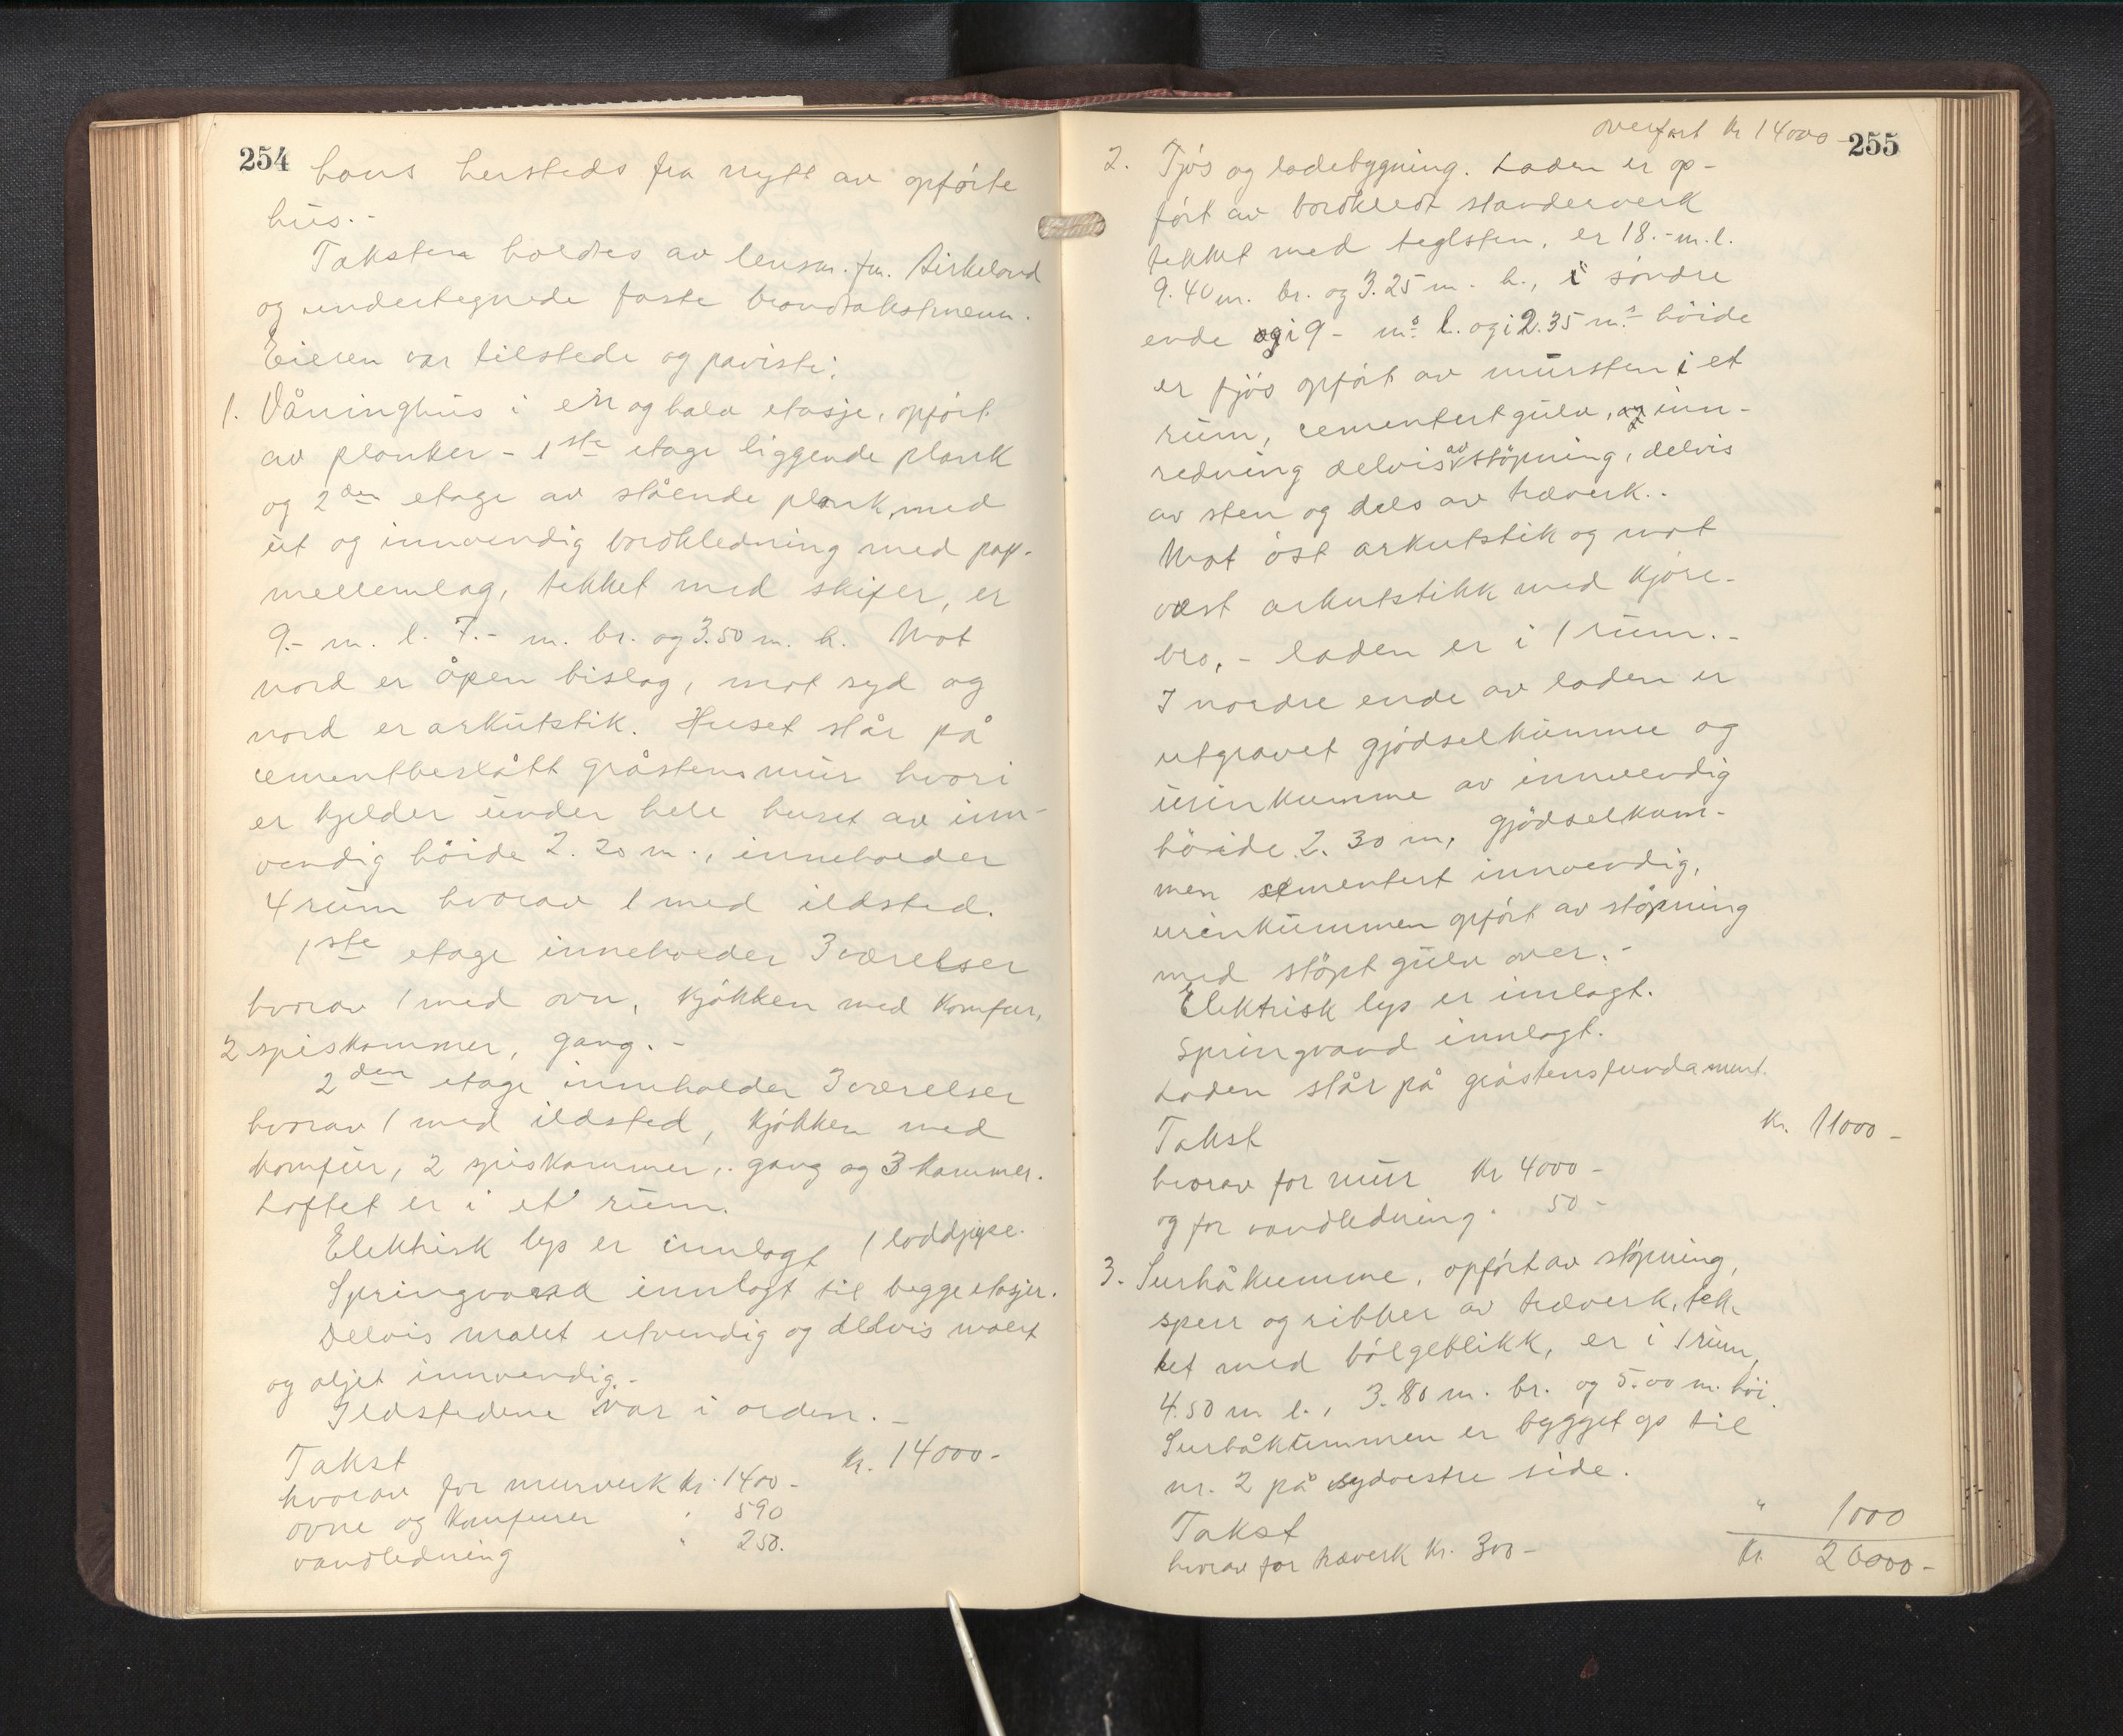 254
hans hersteds fra nytt av opførte
hus.-
Taksten holdtes av lensm. fm. Birkeland
og undertegnede faste brandtakstmenn.
Eieren var tilstede og paviste:
1. Våninghus i en og halv etasje, opført
av planker - 1ste etage liggende plank
og 2den etage av stående plank, med
ut og innvendig bordkledning med pap-
mellemlag, tekket med skifer, er
9.- m. l. 7.- m. br. og 3.50 m. h. Mot
nord er åpen bislag, mot syd og
nord er arkutstik. Huset står på
cementbeslått gråstensmur hvori
er kjelder under hele huset av inn-
vendig höide 2.20 m., inneholder
4 rum hvorav 1 med ildsted.
1ste etage inneholder 3 værelser
hvorav 1 med ovn, kjökken med komfur,
2 spiskammer, gang.-
2den etage inneholder 3 værelser
hvorav 1 med ildsted, kjökken med
komfur, 2 spiskammer, gang og 3 kammer.
Loftet er i et rum.
Elektrisk lys er innlagt 1 loddpipe.
Springvand innlagt til begge etasjer.
Delvis malet utvendig og delvis malet
og oljet innvendig.-
Ildstedene var i orden.-
Takst kr. 14000-
hvorav for murverk kr. 1400-
ovne og komfurer " 590
vandledning " 250.
overført kr 14000-
255
2. Fjös og ladebygning. Laden er op-
ført av bordkledt standerverk
tekket med teglsten, er 18.- m. l.
9.40 m. br. og 3.25 m. h., i söndre
ende og i 9- m. l. og i 2.35 m. höide
er fjös opfört av mursten i et
rum, cementert gulv, inn-
redning delvis av stöpning, delvis
av sten og dels av træverk..
Mot öst arkutstik og mot
vest arkutstikk med kjöre-
bro,- laden er i 1 rum.-
I nordre ende av laden er
utgravet gjödselkumme og
urinkumme av innvendig
höide 2.30 m, gjödselkum-
men sementert innvendig,
urinkummen opfört av stöpning
med stöpt gulv over.-
Elektrisk lys er innlagt.
Springvand innlagt.
Laden står på gråstensfundament.
Takst kr. 11000-
hvorav for mur kr 4000-
og for vandledning " 50-
3. Surhåkumme, opfört av stöpning,
sperr og ribber av træverk, tek-
ket med bölgeblikk, er i 1 rum,
4.50 m l., 3.80 m. br. og 5.00 m. höi.
Surhåkummen er bygget op til
nr. 2 på sydvestre side.
Takst " 1000
hvorav for træverk kr. 300- kr. 26000-